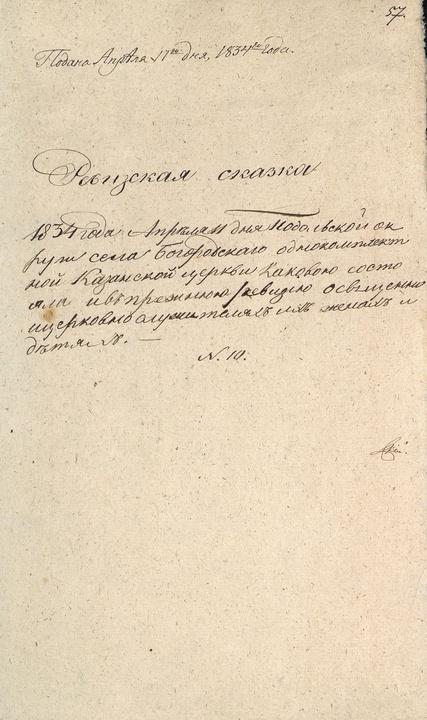 57.
Подана Апрѣля 17го дня, 1834го года.
Ревизская сказка
1834 года Апрѣля 11 дня Подольской ок
руги села Богородскаго однокомплект
ной Казанской церкви каковою состо
яла и въ прежнюю ревизію о священно
и церковнослужителяхъ ихъ женахъ и
дѣтяхъ. —
N. 10.